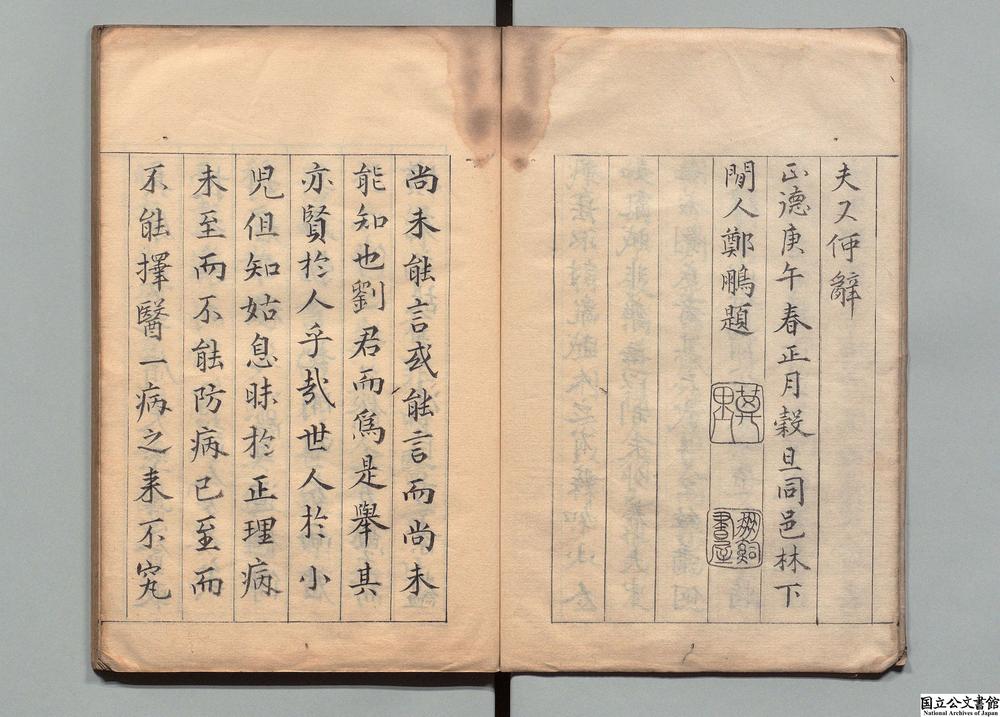 夫又何辭
正德庚午春正月穀旦同邑林下
閒人鄭鵬題
尚未能言或能言而尚未
能知也劉君而爲是舉其
亦賢於人乎哉世人於小
児但知姑息昧於正理病
未至而不能防病已至而
不能擇醫一病之来不究
国立公文書館
National Archives of Japan